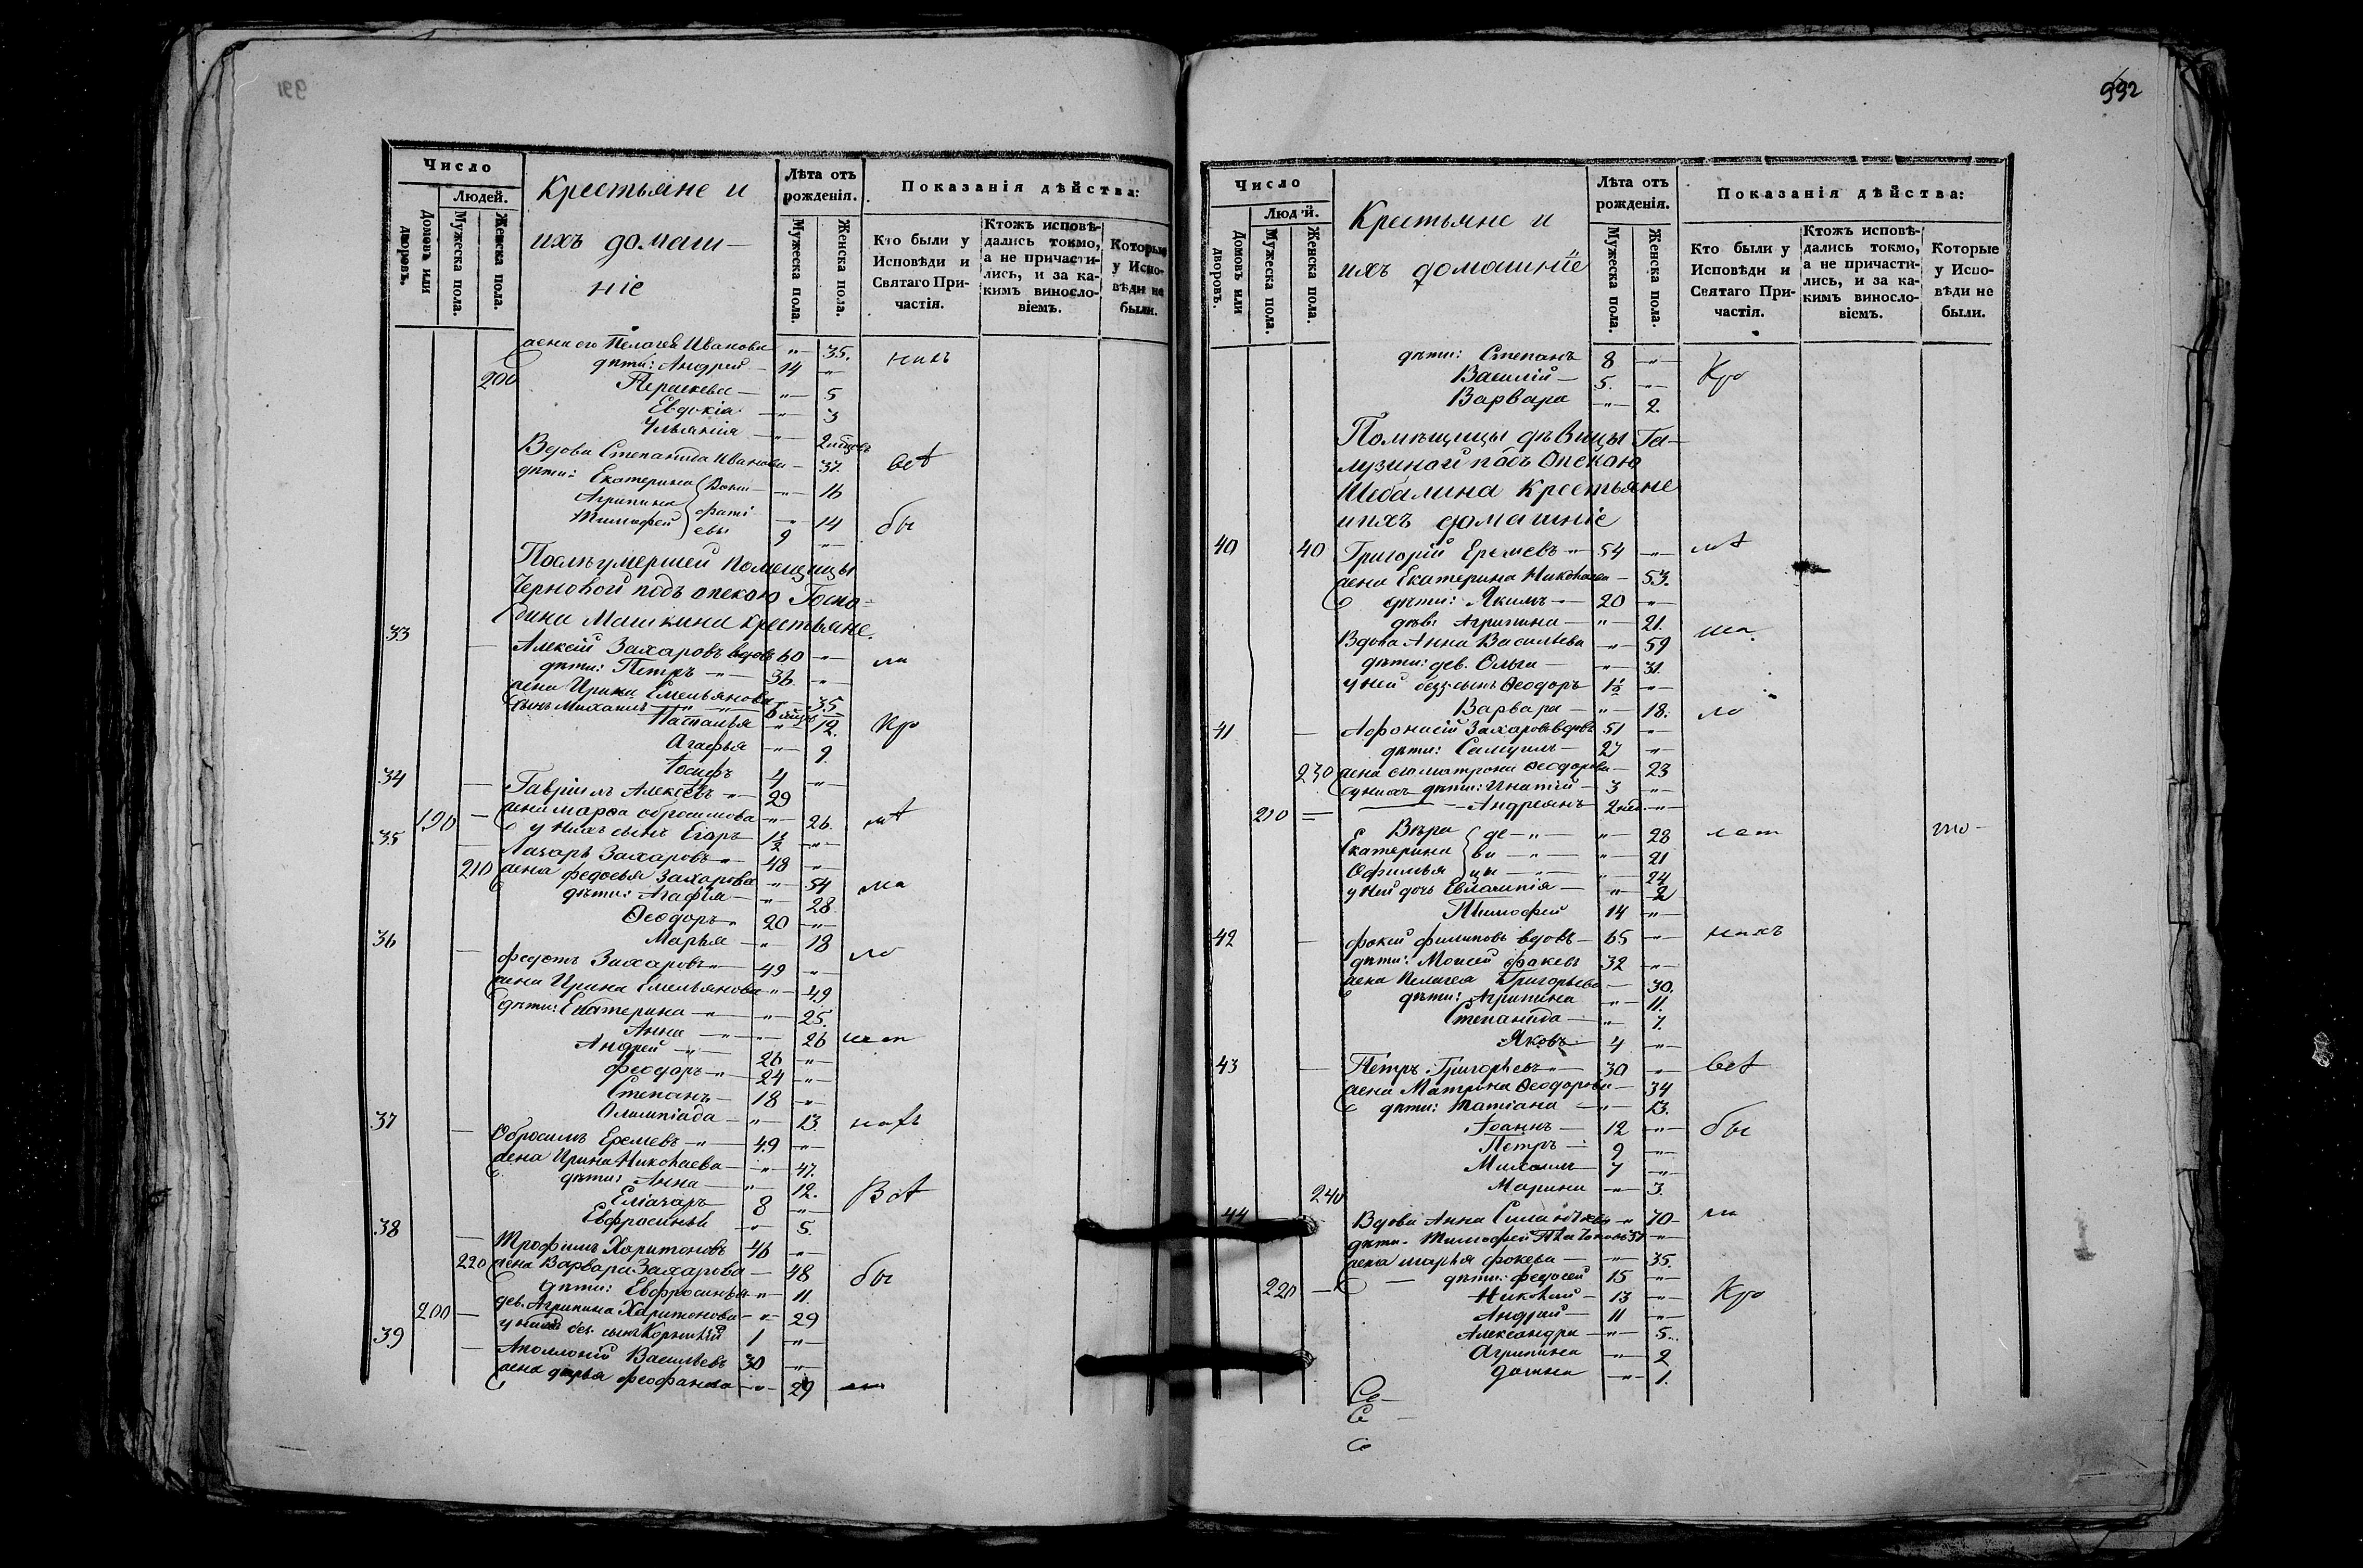 991
Число
Людей.
Домовъ или дворовъ.
Мужеска пола.
Женска пола.
Крестьяне и
ихъ домаш-
ніе
Лѣта отъ рожденія.
Мужеска пола.
Женска пола.
Показанія дѣйства:
Кто были у Исповѣди и Святаго Причастія.
Ктожъ исповѣдались токмо, а не причастились, и за какимъ винословіемъ.
Которые у Исповѣди не были.
жена его Пелагея Иванова " 35.
200 дѣти: Андрей 14 "
Параскева " 5
Евдокія " 3
Ульянія " 2
Вдова Степанида Иванова 37.
дѣти: Екатерина " 16
Агрипина " 14
Тимофей 9 "
Послѣ умершей помещицы
Черновой подъ опекою Госпо-
дина Машкина крестьяне.
33 Алексѣй Захаровъ вдовъ 60 "
дѣти: Петръ 36. "
жена Ирина Емельянова " 35
сынъ Михаилъ 6
Наталья " 12.
Агафья " 9.
Іосифъ 4 "
34 Гавріилъ Алексѣевъ 29
жена Марфа Обросимова " 26.
190 у нихъ сынъ Егоръ 1½ "
35 Лазарь Захаровъ 48 "
210 жена Федосья Захарова " 54
дѣти: Агафья " 28.
Ѳеодоръ 20 "
Марья " 18
36 Федотъ Захаровъ 49 "
жена Ирина Емельянова " 49.
дѣти: Екатерина " 25.
Анна " 26
Андрей 26 "
Феодоръ 24 "
Степанъ 18 "
Олимпіада " 13.
37 Обросимъ Еремевъ 49 "
жена Ирина Николаева " 47.
дѣти: Анна " 12.
Еліазаръ 8 "
Евфросинья " 5.
38 Трофимъ Харитоновъ 46 "
220 жена Варвара Захарова 48
дѣти: Евфросинья " 11.
дев. Агрипина Харитонова " 29
200 сынъ Корнилій 1 "
39 Аполлоній Васильевъ 30 "
жена Дарья Феофанова " 29
992
Число
Людей.
Домовъ или дворовъ.
Мужеска пола.
Женска пола.
Крестьяне и
ихъ домашніе
Лѣта отъ рожденія.
Мужеска пола.
Женска пола.
Показанія дѣйства:
Кто были у Исповѣди и Святаго Причастія.
Ктожъ исповѣдались токмо, а не причастились, и за какимъ винословіемъ.
Которые у Исповѣди не были.
дѣти: Степанъ 8 "
Василій 5. "
Варвара " 2.
Помѣщицы дѣвицы Га-
лузиной подъ Опекою
Шебалина Крестьяне
и ихъ домашніе
40 40 Григорій Еремевъ 54 "
жена Екатерина Николаева 53.
дѣти: Якимъ 20 "
дѣв. Агрипина " 21.
Вдова Анна Васильева " 59
дѣти: дев. Ольга " 31.
у ней сынъ Ѳеодоръ 1½ "
Варвара " 18.
41 Афонасій Захаровъ вдовъ 51 "
дѣти: Самуилъ 27 "
230 жена его Матрона Ѳеодорова 23
у нихъ дѣти: Игнатій 3 "
210 Андреянъ 2 нед. "
Вѣра " 28
Екатерина " 21
Офимья " 24
у ней дочь Евлампія " 2
Тимофей 14 "
42 Фокей Филиповъ вдовъ 65 "
дѣти: Моисей Факевъ 32 "
жена Пелагея Григорьева 30.
дѣти: Агрипина " 11.
Степанида " 7.
Яковъ 4 "
43 Петръ Григорьевъ 30 "
жена Матрона Ѳеодорова 34
дѣти: Татіана " 13.
Іоаннъ 12 "
Петръ 9 "
Михаилъ 7 "
240 Марина " 3.
44 Вдова Анна " 70
дѣти: Тимофей 37 "
жена Марья Фокева " 35.
дѣти: Федосей 15 "
220 Николай 13 "
Андрей 11 "
Александра " 5.
Агрипина " 2
Домна " 1.